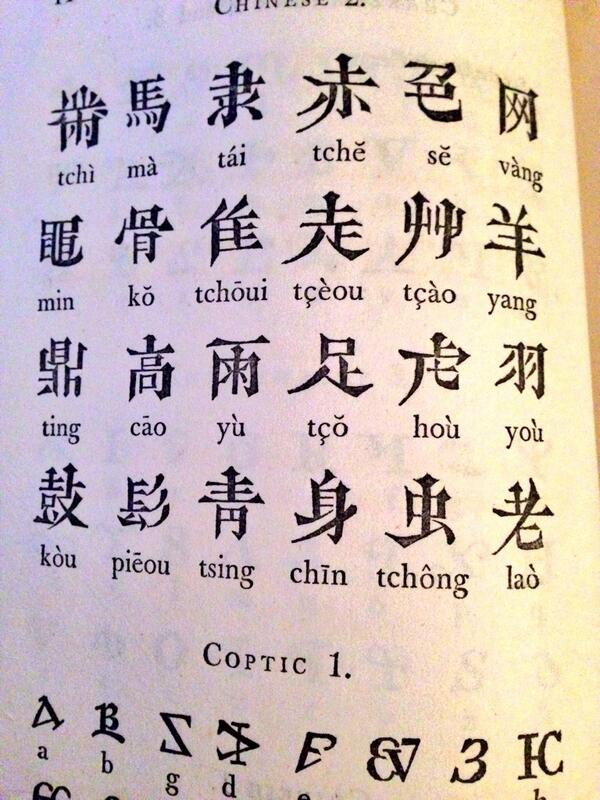 CHINESE 2.
黹 馬 隶 赤 色 网
tchì mà tái tchĕ sĕ vàng
黽 骨 隹 走 艸 羊
min kŏ tchōui tçèou tçào yang
鼎 高 雨 足 虍 羽
ting cāo yù tçŏ hoù yoù
鼓 髟 青 身 虫 老
kòu piēou tsing chīn tchông laò
COPTIC 1.
a b g d